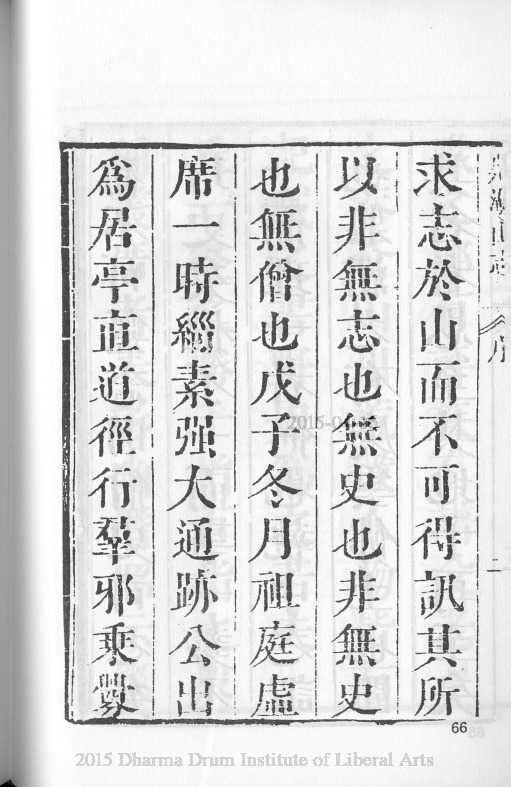 求志於山而不可得訊其所
以非無志也無史也非無史
也無僧也戊子冬月祖庭虛
席一時緇素强大通跡公出
為居亭直道徑行羣邪乘釁
二
66
2015 Dharma Drum Institute of Liberal Arts